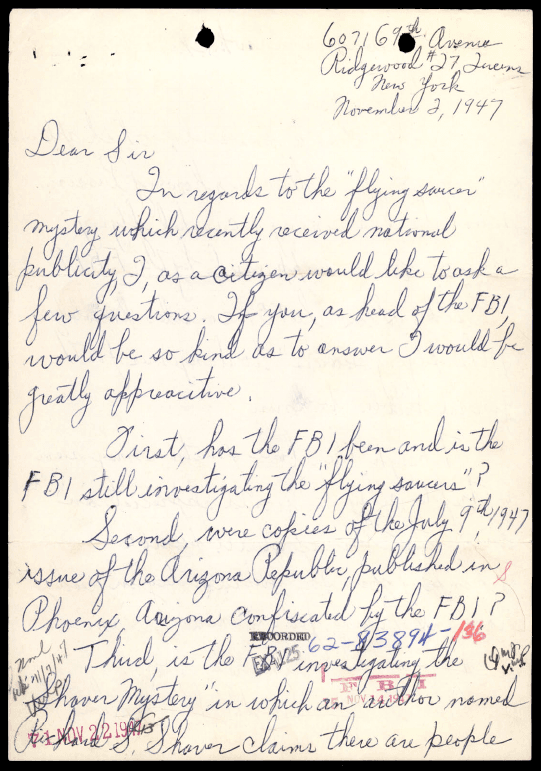 6071 69th Avenue
Ridgewood #27 Queens
New York
November 2, 1947
Dear Sir
In regards to the "flying saucer"
mystery which recently received national
publicity, I, as a citizen would like to ask a
few questions. If you, as head of the FBI,
would be so kind as to answer I would be
greatly appreacitive.
First, has the FBI been and is the
FBI still investigating the "flying saucers"?
Second, were copies of the July 9th, 1947
issue of the Arizona Republic, published in
Phoenix, Arizona confiscated by the FBI?
RECORDED 62-83894-136
Third, is the FBI investigating the
EX-25
F B I
"Shaver Mystery" in which an author named
NOV 14
71 NOV 22 1947
Richard S. Shaver claims there are people